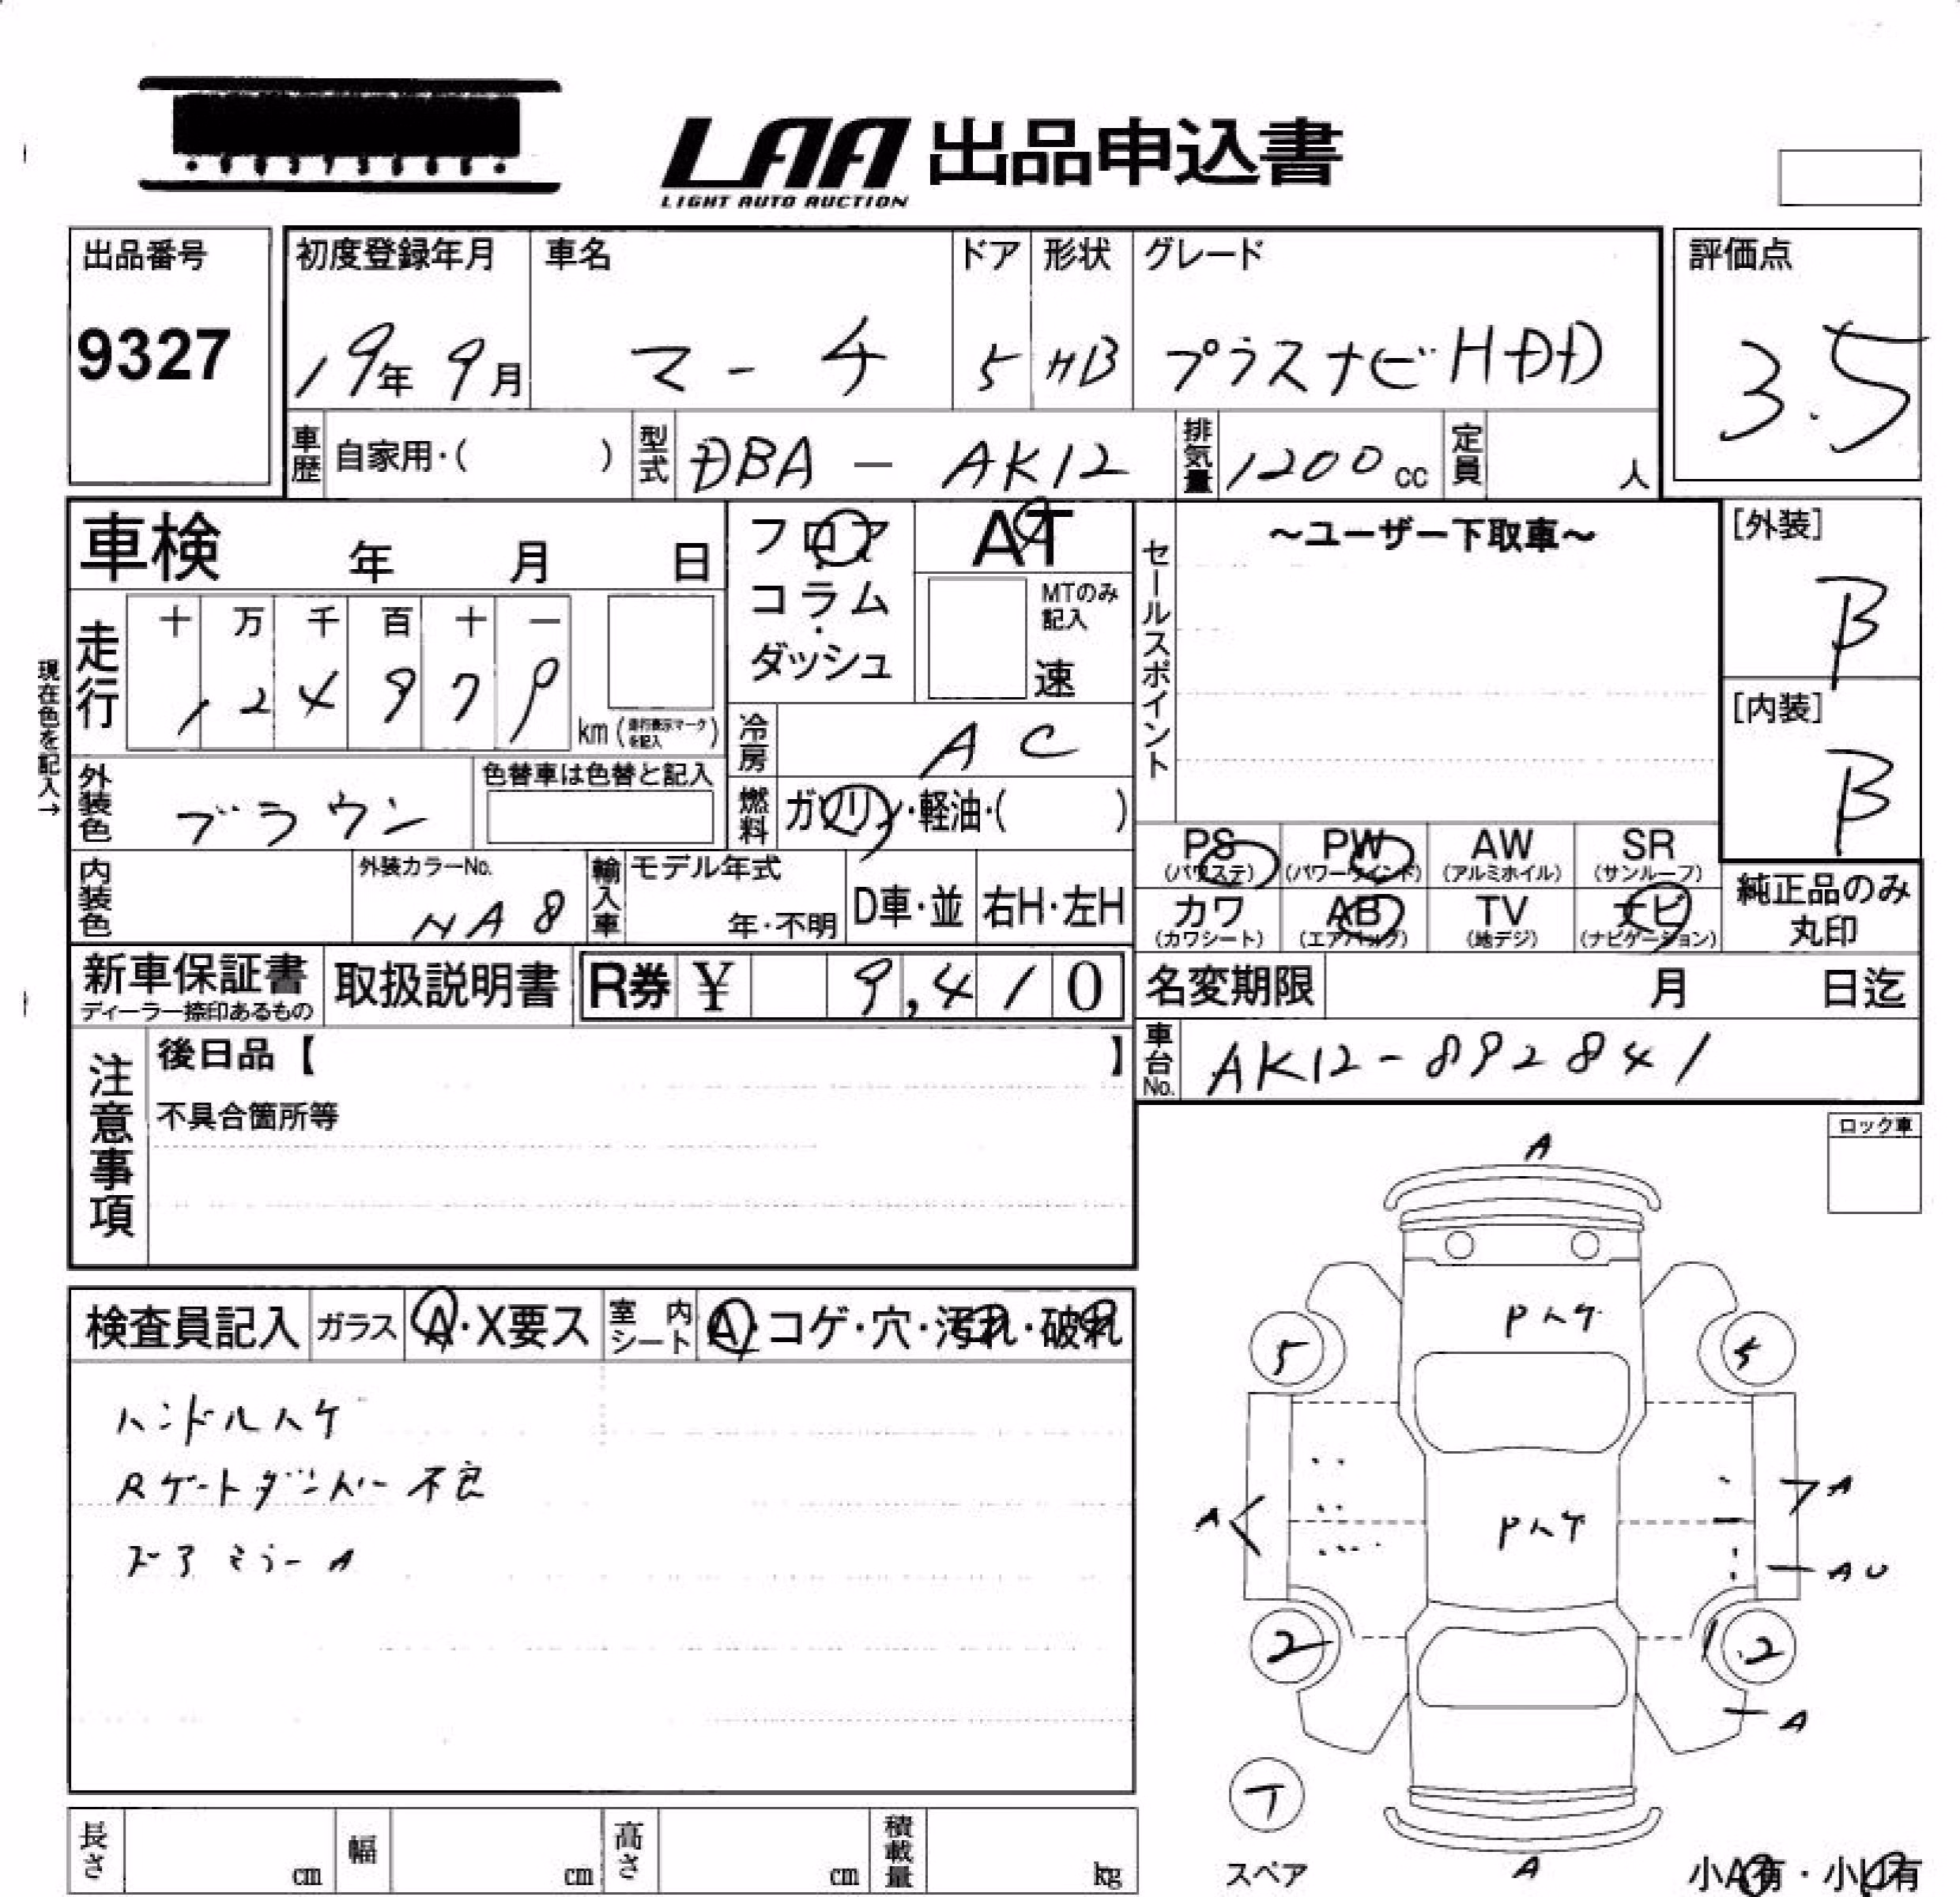 LAA 出品申込書
LIGHT AUTO AUCTION
出品番号 初度登録年月 車名 ドア 形状 グレード 評価点
9327 19年 9月 マーチ 5 HB プラスナビHDD 3.5
車歴 自家用・( ) 型式 DBA - AK12 排気量 1200cc 定員 人
車検 年 月 日 フロア AT ~ユーザー下取車~ [外装]
コラム・ MTのみ記入 セールスポイント B
ダッシュ 速
走行 十 万 千 百 十 一
1 2 4 9 7 9 km(走行表示マークを記入) [内装]
現在色を記入→
冷房 AC B
外装色 ブラウン 色替車は色替と記入 燃料 ガソリン・軽油・( )
PS (パワステ) PW (パワーウインド) AW (アルミホイル) SR (サンルーフ)
内装色 外装カラーNo. NA8 輸入車 モデル年式 年・不明 D車・並 右H・左H
カワ (カワシート) AB (エアバッグ) TV (地デジ) ナビ (ナビゲーション) 純正品のみ丸印
新車保証書 ディーラー捺印あるもの 取扱説明書 R券 ¥ 9,410 名変期限 月 日迄
車台No. AK12-892841
注意事項 後日品【 】
不具合箇所等
ロック車
検査員記入 ガラス A・X要ス 室内シート A・コゲ・穴・汚れ・破れ
ハンドルハケ
Rゲートダンパー不良
ドアミラーA
A
Pハケ
5 5
A A
Pハケ
AU
2 2
A
T
スペア A 小A有・小U有
長さ cm 幅 cm 高さ cm 積載量 kg